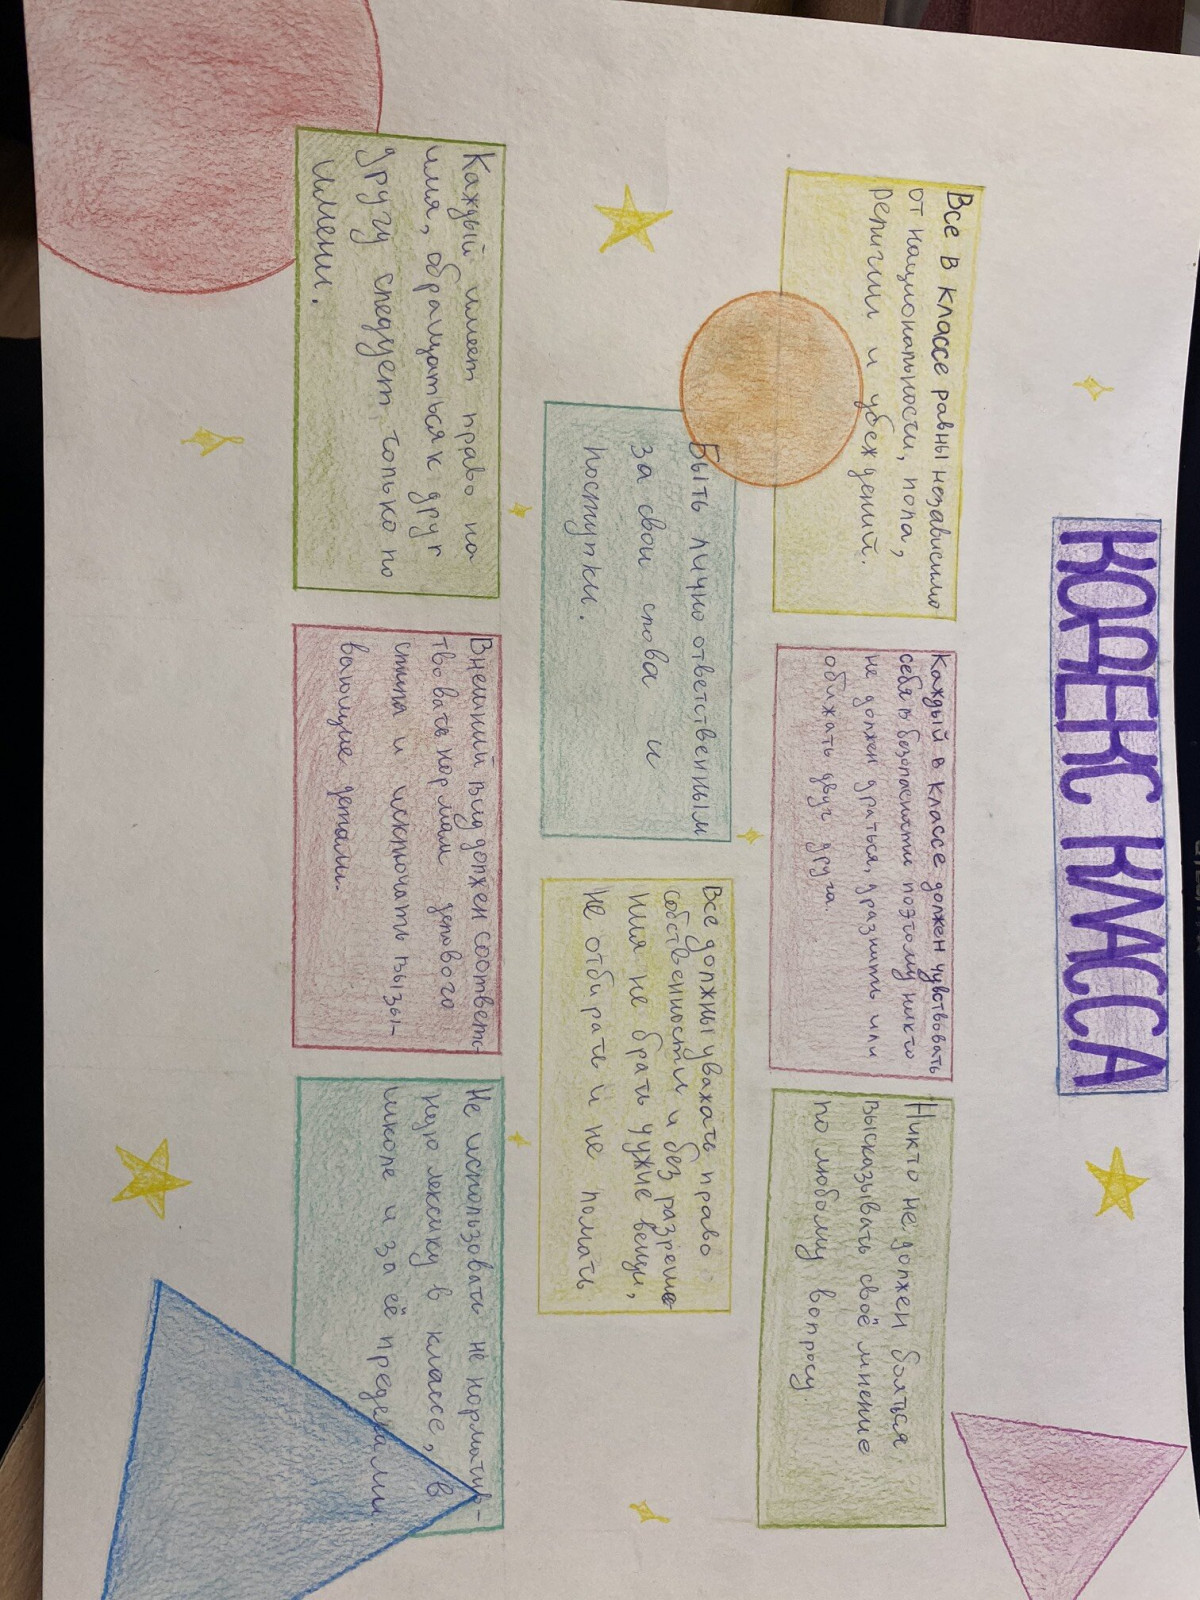 КОДЕКС КЛАССА
Все в классе равны независимо
от национальности, пола,
религии и убеждений.
Каждый в классе должен чувствовать
себя в безопасности поэтому никто
не должен драться, дразнить или
обижать друг друга.
Никто не должен бояться
высказывать своё мнение
по любому вопросу
Быть лично ответственным
за свои слова и
поступки.
Все должны уважать право
собственности и без разреше
ния не брать чужие вещи,
не отбирать и не ломать
Каждый имеет право на
имя, обращаться к друг
другу следует только по
имени.
Внешний вид должен соответс-
твовать нормам делового
стиля и исключать вызы-
вающие детали.
Не использовать не норматив-
ную лексику в классе, в
школе и за её пределами.